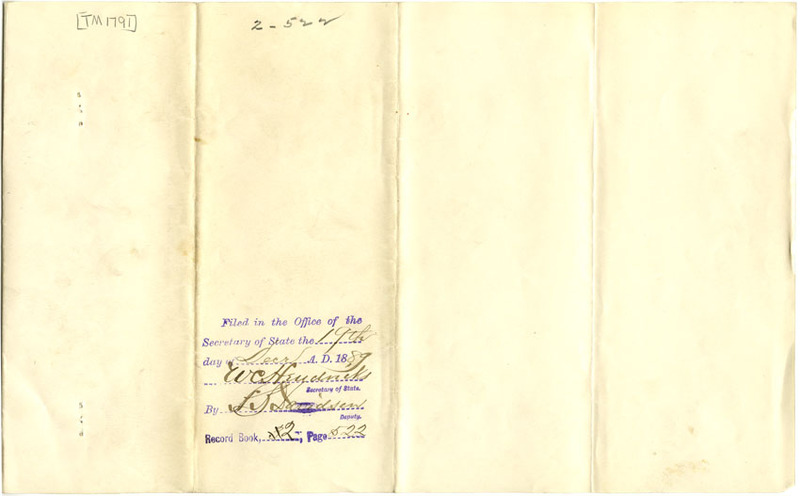 [TM1791]
2-522
Filed in the Office of the
Secretary of State the 19th
day of Decr A. D. 1889
W C Hendricks
Secretary of State.
By
Deputy.
Record Book, 2, Page 522